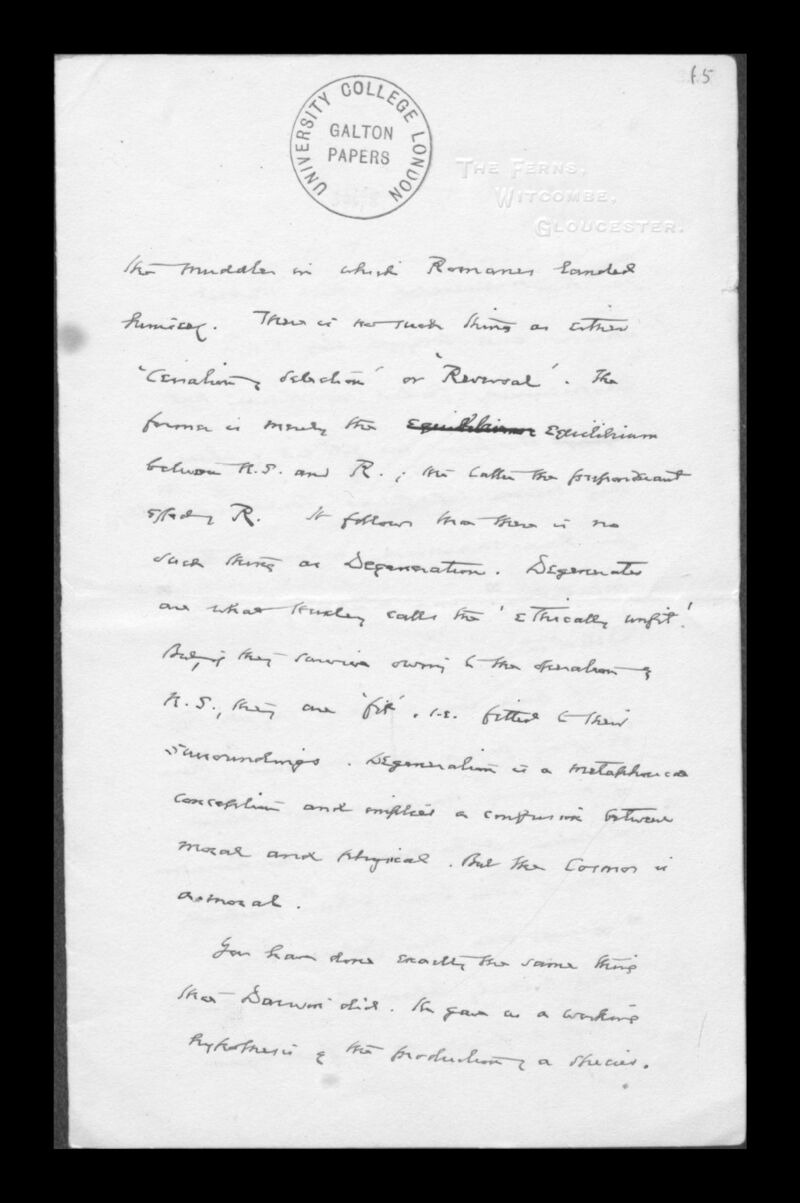 65
UNIVERSITY COLLEGE LONDON
GALTON
PAPERS
THE FERNS,
WITCOMBE,
GLOUCESTER.
the muddles in which Romanes landed
himself. There is no such thing as either
'Cessation of Selection' or 'Reversal'. The
former is merely the Equilibrium Equilibrium
between N.S. and R.; the latter the preponderant
effect of R. It follows that there is no
such thing as Degeneration. Degenerates
are what Huxley calls the 'ethically unfit'.
But, if they survive owing to the operation of
N.S., they are 'fit', i.e. fitted to their
surroundings. Degeneration is a metaphorical
conception and implies a confusion between
moral and physical. But the Cosmos is
a-moral.
You have done exactly the same thing
that Darwin did. He gave us a working
hypothesis of the production of a species.